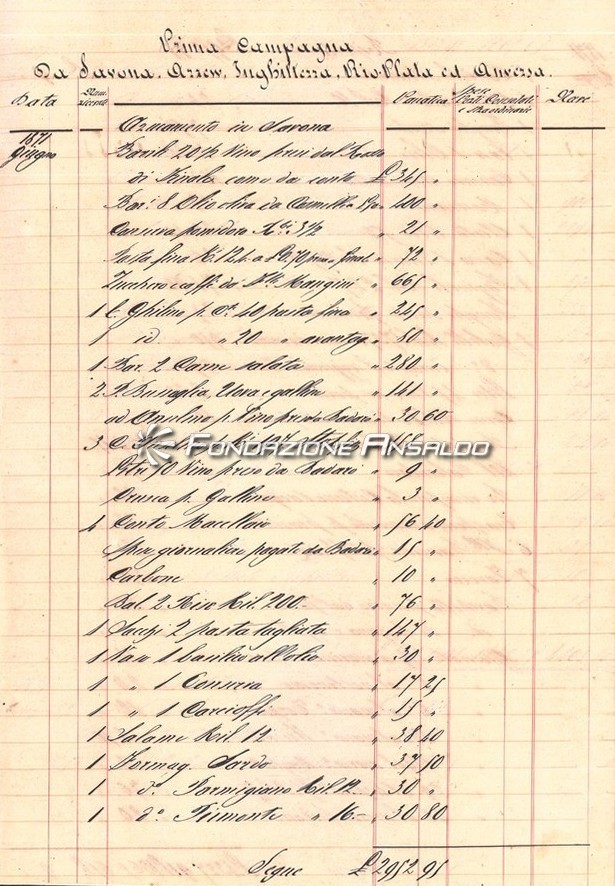 Prima Campagna
Da Savona. Arzew. Inghilterra. Rio Plata ed Anversa.
Data
Panatica
Spese Porti Consolati
e Straordinarie
Nave
Armamento in Savona
187
Giugno
Barili 20 1/2 Vino presi dal
di Finale come da conto £ 345 "
Bar.i 8 Olio oliva da " 400 "
Conserva pomidoro 3 1/2 " 21 "
Pasta fina K. 126 a 0,70 presa a Final. " 72 "
Zucchero e caffè da Mangini " 665 "
1 C. Ghilino p. 40 pasta fina " 245 "
1 id " 20 " avantag. " 80 "
1 Bar. 2 Carne salata " 280 "
2 P. Buscaglia, Uova e galline " 141 "
ad Anselmo p. Vino preso da Badarò " 30 60
3 C.
FONDAZIONE ANSALDO
Litri 70 Vino preso da Badarò " 9 "
Crusca p. Galline " 3 "
4 Conto Macellaio " 56 40
Spese giornaliere pagate da Badarò " 15 "
Carbone " 10 "
Bal. 2 Riso Kil. 200.- " 76 "
1 Sacchi 2 pasta tagliata " 147 "
1 Vaso 1 basilico all'olio " 30 "
1 " 1 Conserva " 17 25
1 " 1 Carcioffi " 15 "
1 Salame Kil 12 " 38 40
1 Formag. Sardo " 37 50
1 d.o Parmigiano Kil 12 " 30 "
1 d.o Piemonte " 16.- " 30 80
Segue £ 2952 95